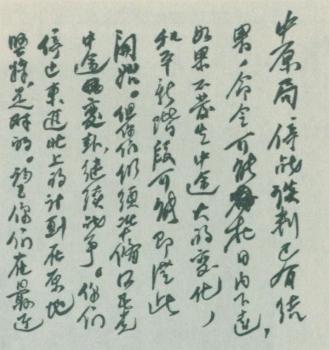 中原局：停战谈判已有结
果，命令可能在日内下达，
如果不发生中途大的变化，
和平新阶段可能即从此
开始。但你们仍须准备何应
中途变卦，继续战争。你们
停止东进北上的计划在原地
坚持，是对的。望你们在最近